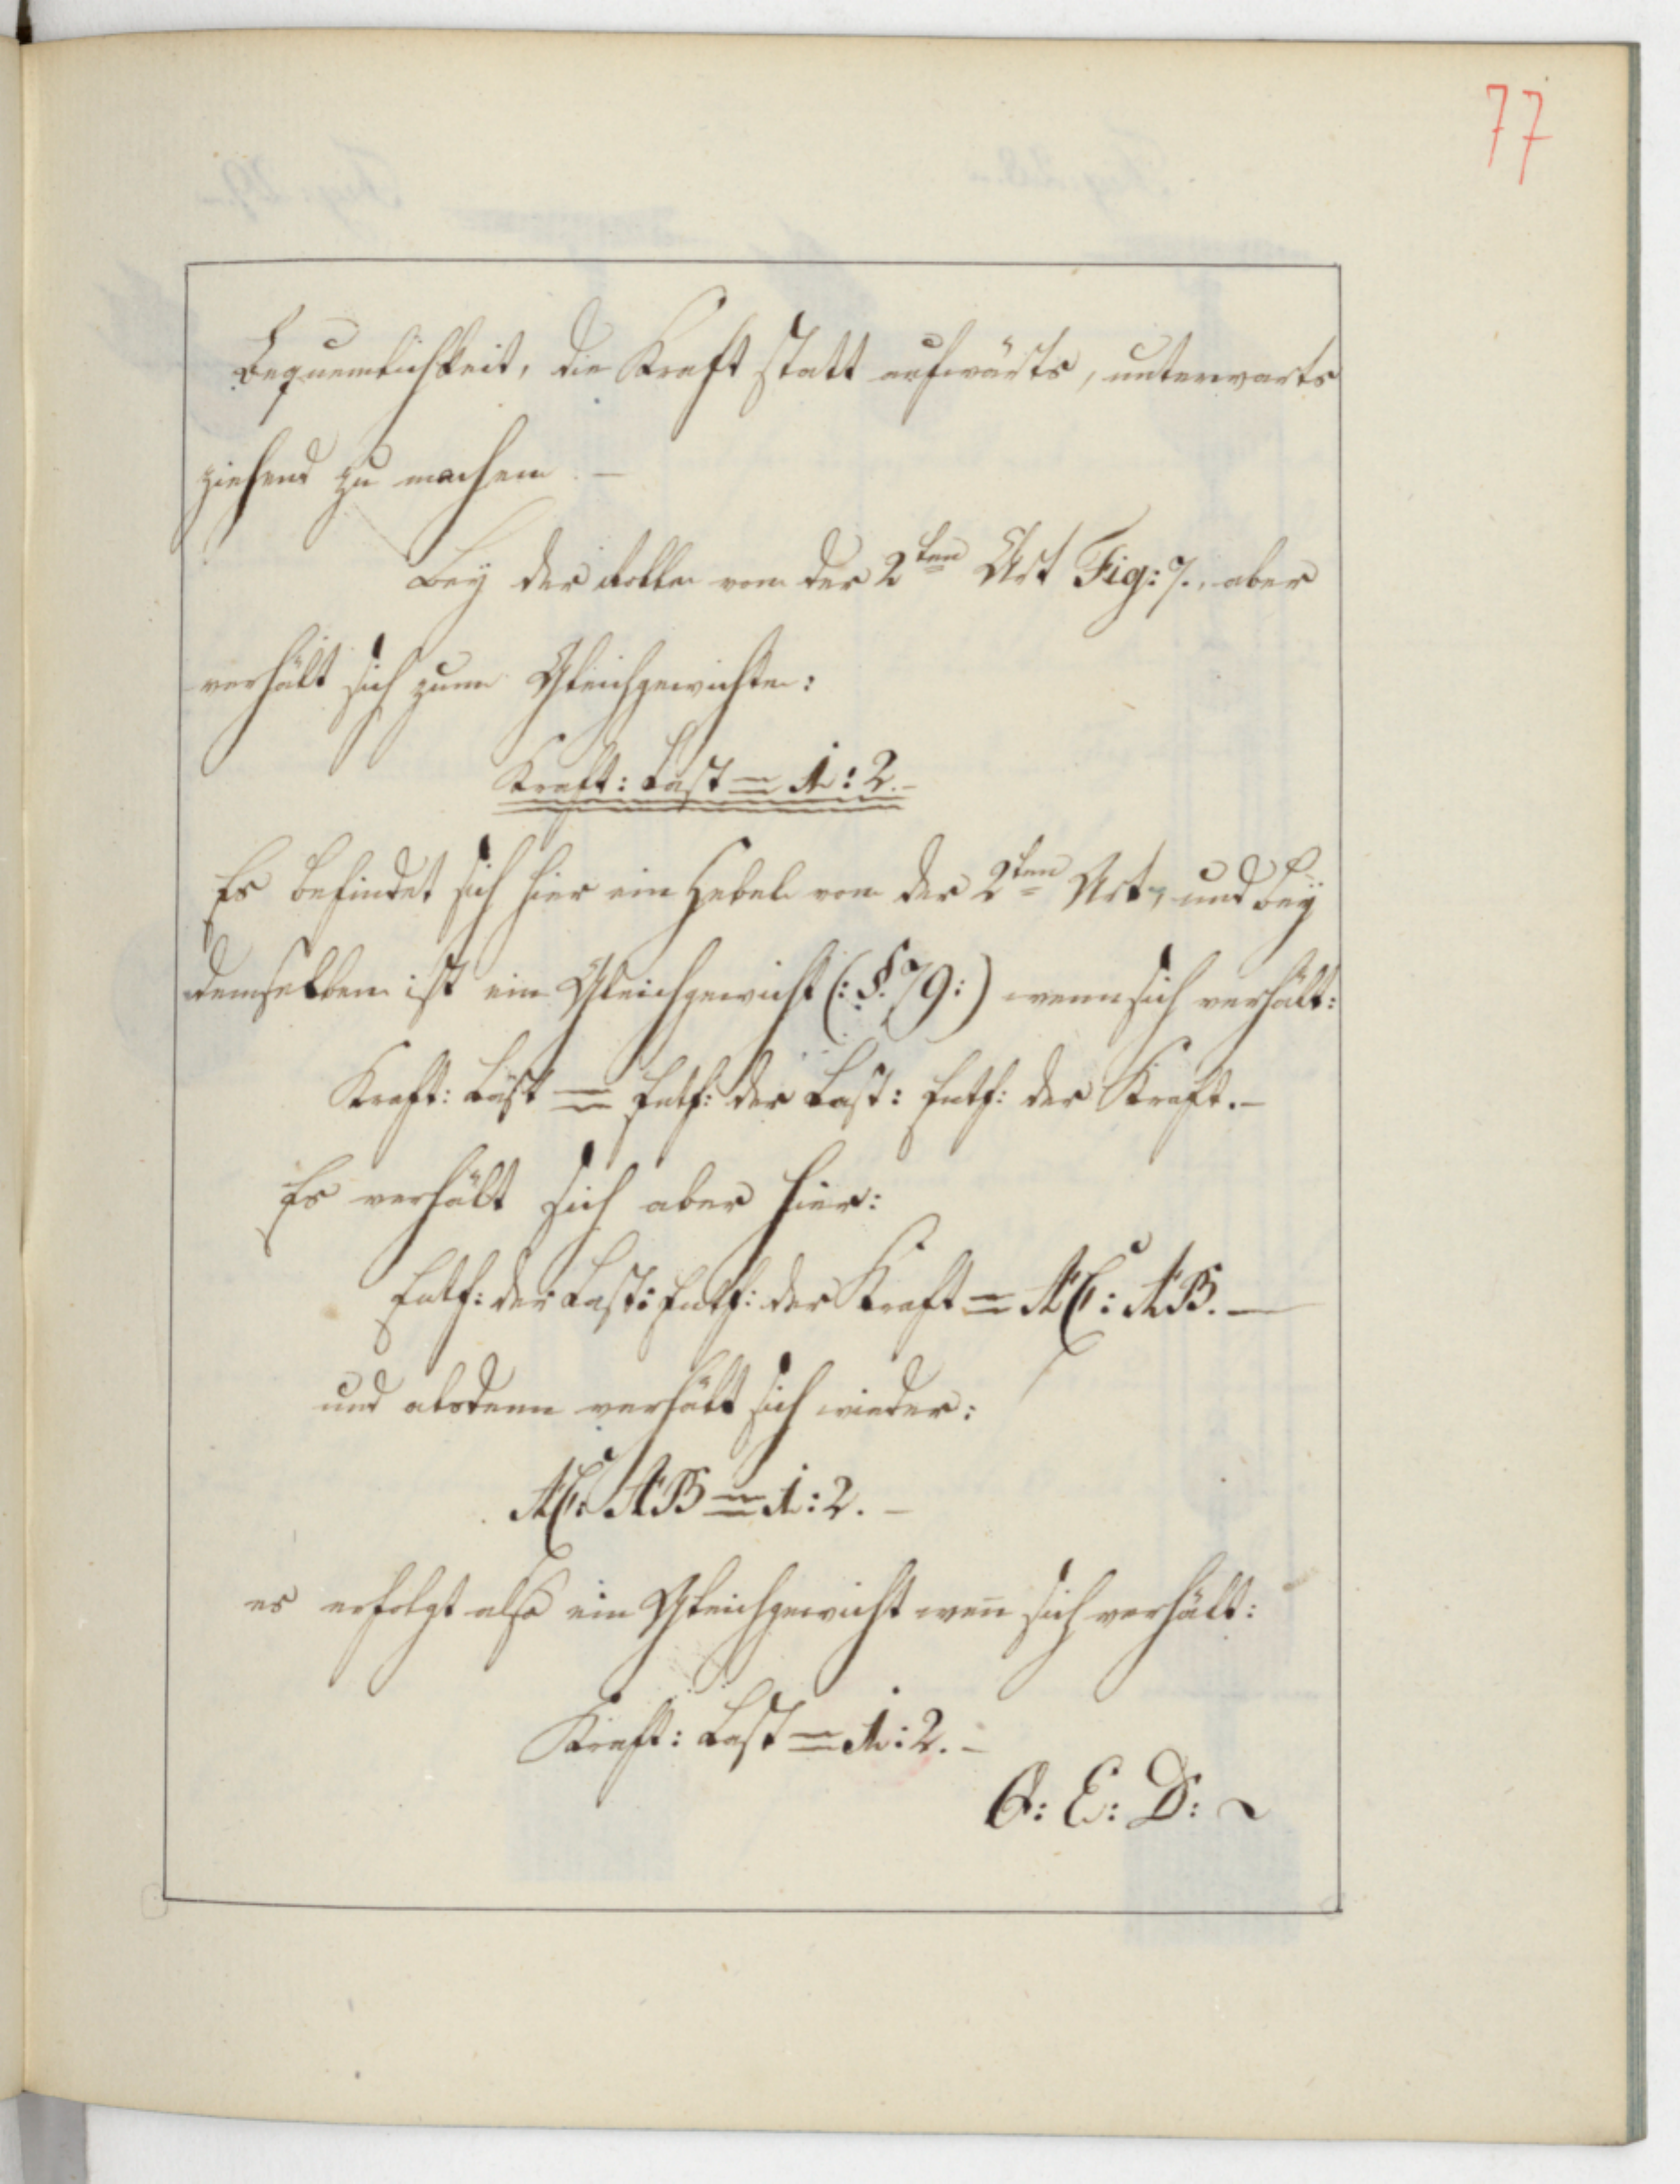 77
Bequemlichkeit, die Kraft statt aufwärts, unterwarts
ziehend zu machen. —
Bey der Rolle von der 2ten Art Fig: 7. aber
verhält sich zum Gleichgewichte:
Kraft: Last = 1: 2. —
Es befindet sich hier ein Hebel von der 2ten Art, und bey
demselben ist ein Gleichgewicht (: §. 79 :) wenn sich verhält:
Kraft: Last = Entf: der Last: Entf: der Kraft. —
Es verhält sich aber hier:
Entf: der Last: Entf: der Kraft = AC: AB. —
und alsdenn verhält sich wieder:
AC: AB = 1: 2. —
es erfolgt also ein Gleichgewicht weñ sich verhält:
Kraft: Last = 1: 2. —
Q: E: D: ~